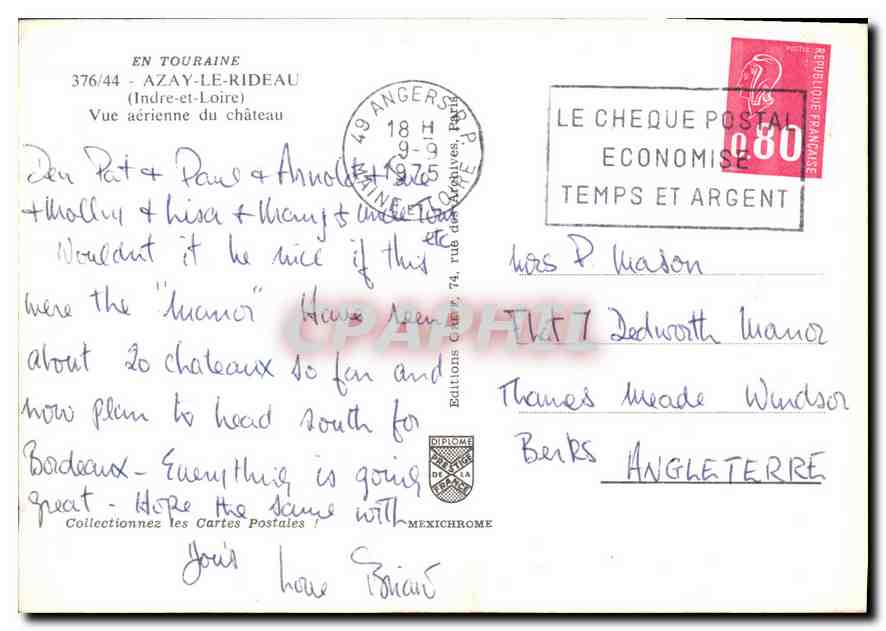 EN TOURAINE
376/44 - AZAY-LE-RIDEAU
(Indre-et-Loire)
Vue aérienne du château
49 ANGERS R.P.
18 H
9-9
1975
MAINE ET LOIRE
LE CHEQUE POSTAL
ECONOMISE
TEMPS ET ARGENT
POSTES
REPUBLIQUE FRANÇAISE
0.80
Dear Pat + Paul + Arnold + Sue
+ Molly + Lisa + Mary + Uncle Tom
etc
Wouldnt it be nice if this
were the "Manor" Have seen
about 20 chateaux so far and
now plan to head south for
Bordeaux - Everything is going
great - Hope the same with
You's
Love Brian
Editions 74, rue des Archives, Paris
Mrs P. Mason
Flat 7 Dedworth Manor
Thames Meade Windsor
Berks ANGLETERRE
DIPLOME
PRESTIGE
DE LA
FRANCE
Collectionnez les Cartes Postales !
MEXICHROME
CPAPHIL